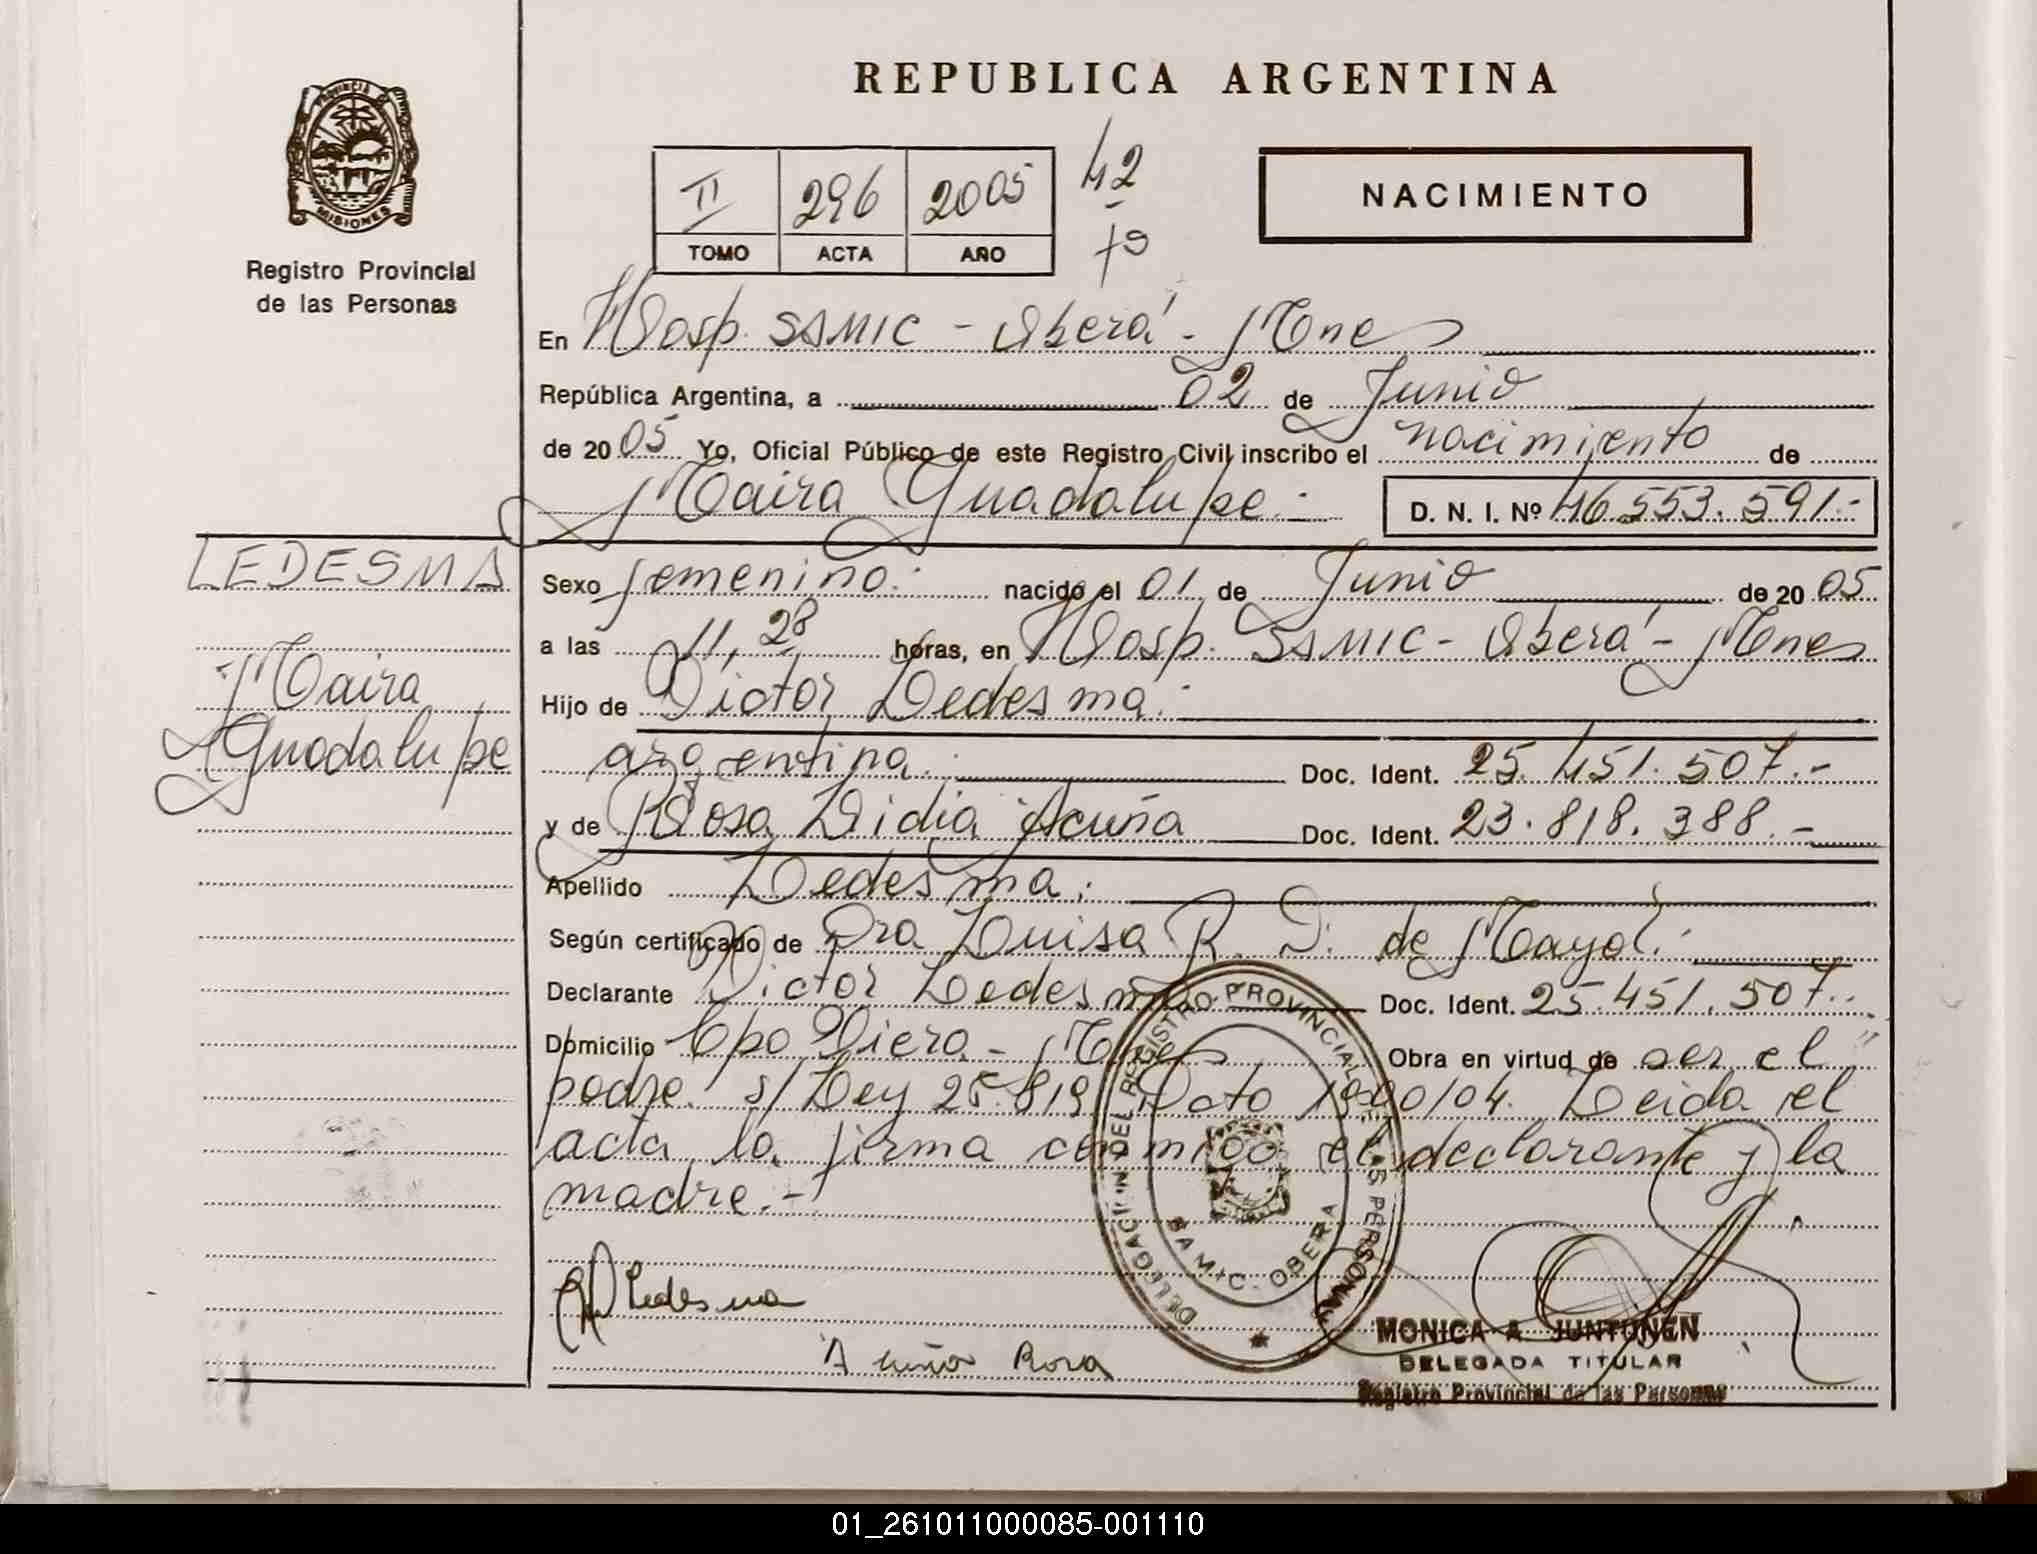 REPUBLICA ARGENTINA
PROVINCIA D
MISIONES
Registro Provincial
de las Personas
II 296 2005 42
TOMO ACTA AÑO fº
NACIMIENTO
En Hosp. SAMIC - Oberá - Mnes
República Argentina, a 02 de Junio
de 2005 Yo, Oficial Público de este Registro Civil inscribo el nacimiento de
Maira Guadalupe.- D. N. I. Nº 46.553.591.-
LEDESMA
Maira
Guadalupe
Sexo femenino.- nacido el 01 de Junio de 2005
a las 11,28 horas, en Hosp. SAMIC - Oberá - Mnes
Hijo de Victor Ledesma.-
argentina.- Doc. Ident. 25.451.507.-
y de Rosa Lidia Acuña Doc. Ident. 23.818.388.-
Apellido Ledesma.-
Según certificado de Dra Luisa R. D. de Mayol.-
Declarante Victor Ledesma Doc. Ident. 25.451.507.-
Domicilio Cpo Viera - Mnes Obra en virtud de ser el
padre. s/Ley 25.819 Dcto 1990/04. Leida el
acta, la firma conmigo el declarante y la
madre.-
Ledesma
Acuña Rosa
DELEGACION DEL REGISTRO PROVINCIAL DE LAS PERSONAS
SAMIC - OBERA
MONICA A JUNTUNEN
DELEGADA TITULAR
Registro Provincial de las Personas
01_261011000085-001110